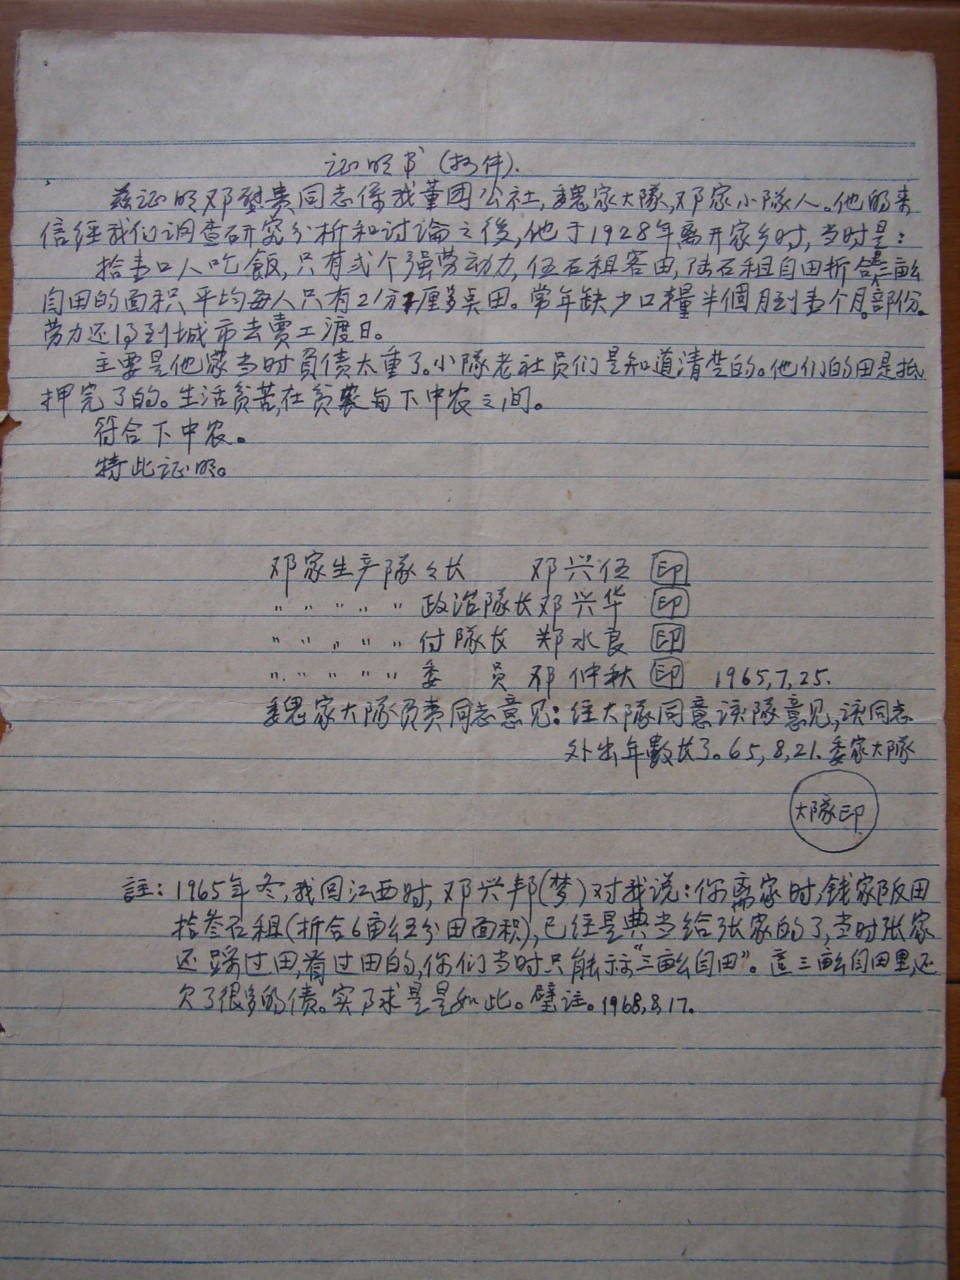 证明书(抄件).
兹证明邓壁贵同志係我董團公社,魏家大隊,邓家小隊人。他的来
信经我们调查研究分析和讨論之後,他于1928年离开家乡时,当时是:
拾壹口人吃飯,只有弍个强劳动力,伍石租客田,陆石租自田折合是三亩
自田的面积,平均每人只有2分7厘多点田。常年缺少口糧半個月到壹个月。部份
劳力还得到城市去賣工渡日。
主要是他家当时負债太重了。小隊老社员们是知道清楚的。他们的田是抵
押完了的。生活贫苦,在贫农与下中农之间。
符合下中农。
特此证明。
邓家生产隊々长 邓兴伍 印
〃 〃 〃 〃 〃 政治隊长邓兴华 印
〃 〃 〃 〃 〃 付隊长 郑水良 印
〃 〃 〃 〃 〃 委 员 邓仲秋 印 1965,7,25.
魏家大隊负责同志意见:经大隊同意该隊意见,该同志
外出年數长了。65,8,21.委家大隊
大隊印
註:1965年冬,我回江西时,邓兴邦(梦)对我说:你离家时,钱家阪田
拾叁石租(折合6亩伍分田面积),已经是典当给张家的了,当时张家
还踩过田,看过田的,你们当时只能示"三亩自田"。這三亩自田里,还
欠了很多的债。实际求是是如此。壁注。1968,8,17.